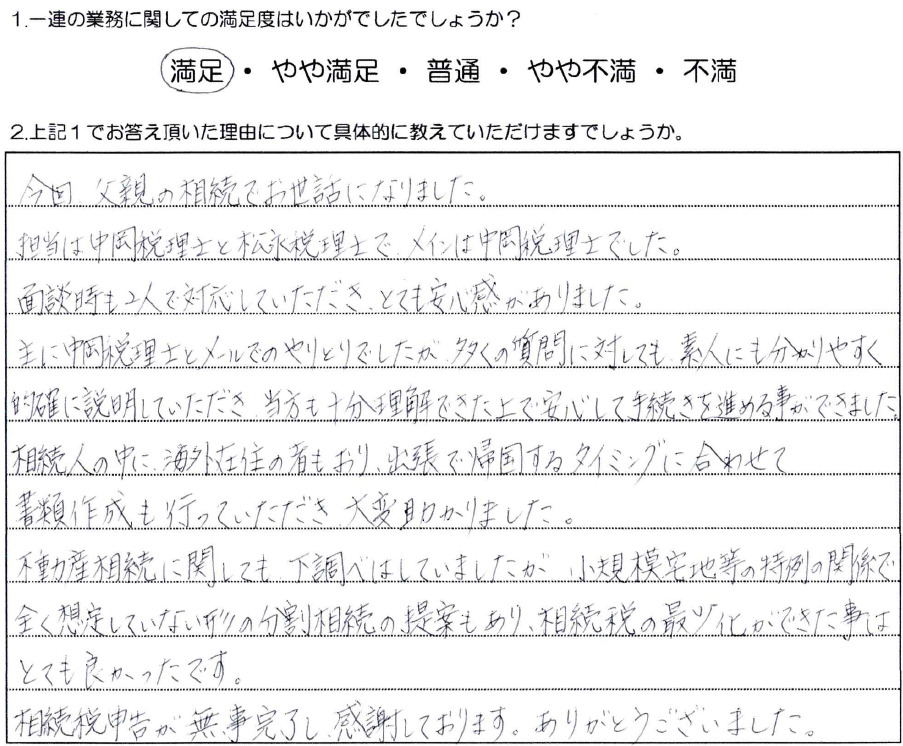 1.一連の業務に関しての満足度はいかがでしたでしょうか？
満足・やや満足・普通・やや不満・不満
2.上記１でお答え頂いた理由について具体的に教えていただけますでしょうか。
今回、父親の相続でお世話になりました。
担当は中岡税理士と松永税理士で、メインは中岡税理士でした。
面談時も2人で対応していただき、とても安心感がありました。
主に中岡税理士とメールでのやりとりでしたが、多くの質問に対しても、素人にも分かりやすく
的確に説明していただき、当方も十分理解できた上で安心して手続きを進める事ができました。
相続人の中に、海外在住の者もおり、出張で帰国するタイミングに合わせて
書類作成も行っていただき、大変助かりました。
不動産相続に関しても、下調べはしていましたが、小規模宅地等の特例の関係で
全く想定していない形の分割相続の提案もあり、相続税の最小化ができた事は
とても良かったです。
相続税申告が無事完了し、感謝しております。ありがとうございました。